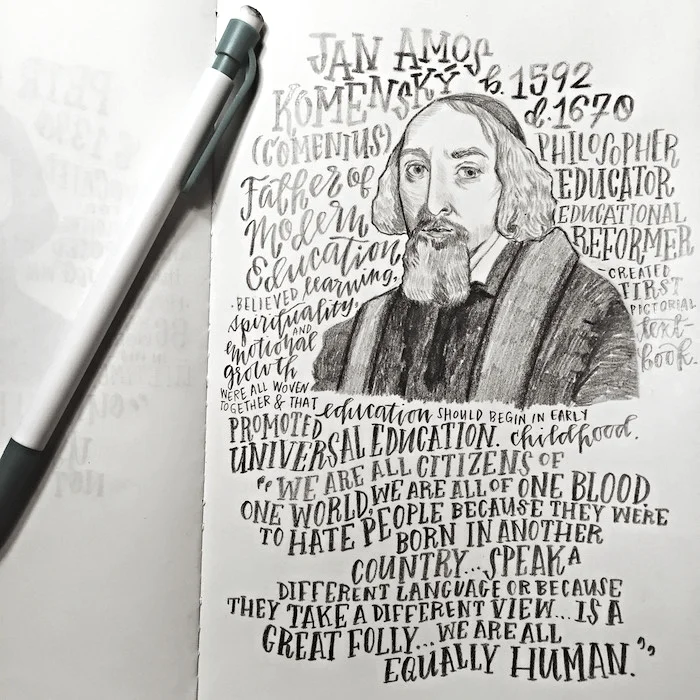 JAN AMOS
KOMENSKÝ b. 1592
d. 1670
(COMENIUS)
Father of
Modern
Education
PHILOSOPHER
EDUCATOR
EDUCATIONAL
REFORMER
CREATED
FIRST
PICTORIAL
text-
book.
• BELIEVED learning,
spirituality,
AND
emotional
growth
WERE ALL WOVEN
TOGETHER & THAT education SHOULD BEGIN IN EARLY
childhood.
PROMOTED
UNIVERSAL EDUCATION.
"WE ARE ALL CITIZENS OF
ONE WORLD, WE ARE ALL OF ONE BLOOD.
TO HATE PEOPLE BECAUSE THEY WERE
BORN IN ANOTHER
COUNTRY... SPEAK A
DIFFERENT LANGUAGE OR BECAUSE
THEY TAKE A DIFFERENT VIEW... IS A
GREAT FOLLY... WE ARE ALL
EQUALLY HUMAN."